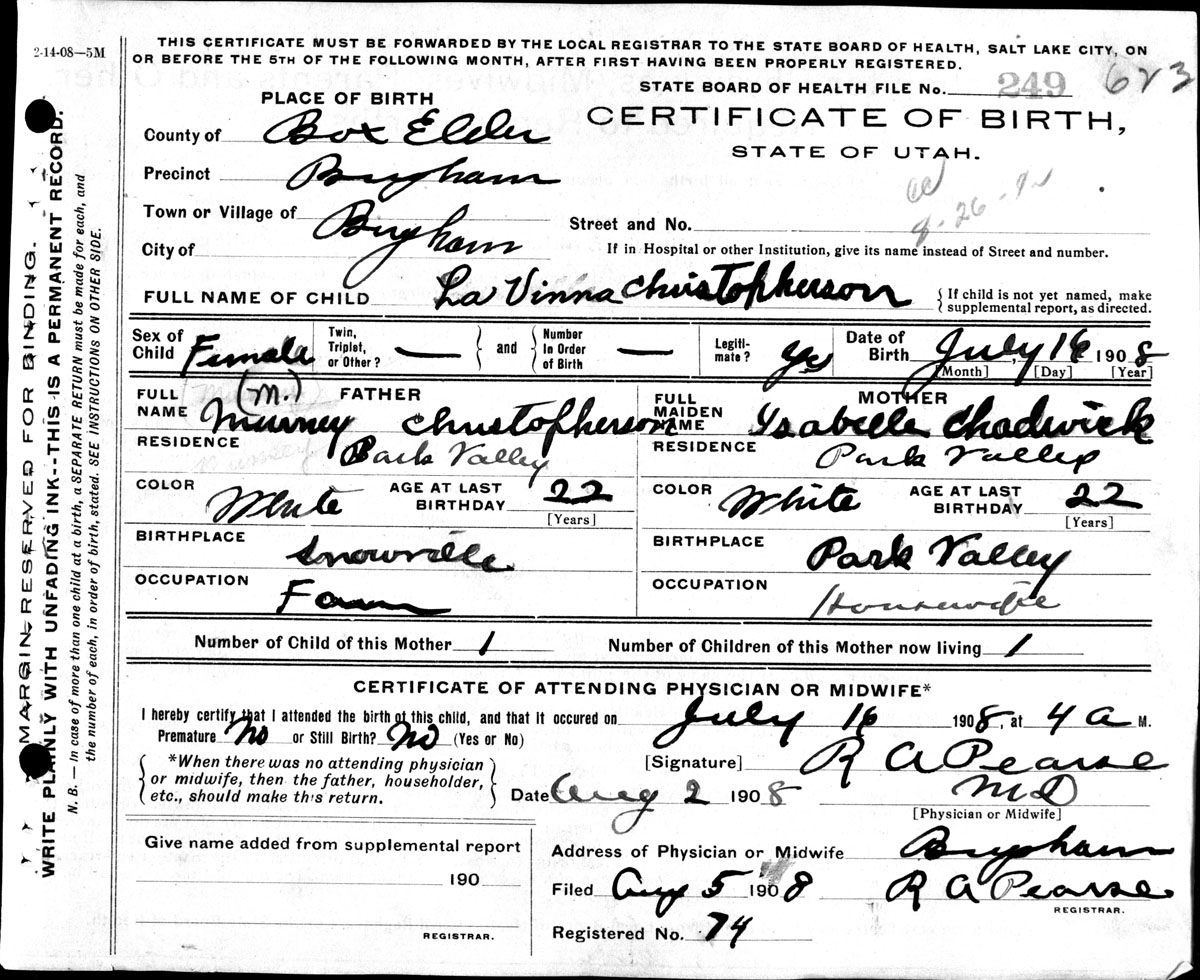 2-14-08—5M
THIS CERTIFICATE MUST BE FORWARDED BY THE LOCAL REGISTRAR TO THE STATE BOARD OF HEALTH, SALT LAKE CITY, ON
OR BEFORE THE 5TH OF THE FOLLOWING MONTH, AFTER FIRST HAVING BEEN PROPERLY REGISTERED.
STATE BOARD OF HEALTH FILE No. 249 623
PLACE OF BIRTH
CERTIFICATE OF BIRTH,
STATE OF UTAH.
County of Box Elder
Precinct Brigham
Town or Village of
City of Brigham
Street and No.
If in Hospital or other Institution, give its name instead of Street and number.
FULL NAME OF CHILD La Vinna Christopherson
If child is not yet named, make
supplemental report, as directed.
Sex of Child Female
Twin, Triplet, or Other? —
and
Number In Order of Birth —
Legiti-mate? Yes
Date of Birth July 16 1908
[Month] [Day] [Year]
FATHER
FULL NAME (M.) Murney Christopherson
RESIDENCE Park Valley
COLOR White AGE AT LAST BIRTHDAY 22
[Years]
BIRTHPLACE Snowville
OCCUPATION Farm
MOTHER
FULL MAIDEN NAME Ysabelle Chadwick
RESIDENCE Park Valley
COLOR White AGE AT LAST BIRTHDAY 22
[Years]
BIRTHPLACE Park Valley
OCCUPATION Housewife
Number of Child of this Mother 1 Number of Children of this Mother now living 1
CERTIFICATE OF ATTENDING PHYSICIAN OR MIDWIFE*
I hereby certify that I attended the birth of this child, and that it occured on July 16 1908, at 4 a M.
Premature No or Still Birth? No (Yes or No)
*When there was no attending physician
or midwife, then the father, householder,
etc., should make this return.
[Signature] R A Pearse
Date Aug 2 1908 MD
[Physician or Midwife]
Give name added from supplemental report
190
REGISTRAR.
Address of Physician or Midwife Brigham
Filed Aug 5 1908 R A Pearse
REGISTRAR.
Registered No. 74
MARGIN RESERVED FOR BINDING.
WRITE PLAINLY WITH UNFADING INK--THIS IS A PERMANENT RECORD.
N. B.—In case of more than one child at a birth, a SEPARATE RETURN must be made for each, and
the number of each, in order of birth, stated. SEE INSTRUCTIONS ON OTHER SIDE.